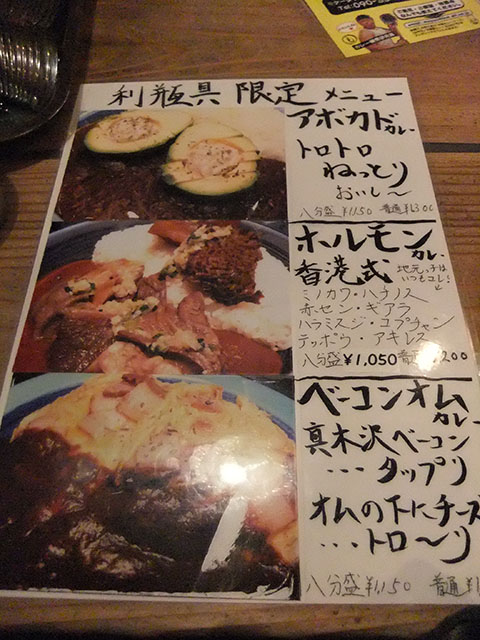 利瓶具 限定 メニュー
アボカドカレー
トロトロ
ねっとり
おいし〜
八分盛 ¥1,150 普通 ¥1,300
ホルモンカレー
香港式
地元っ子は
いつもコレ!
ミノカワ・ハチノス
赤セン・ギアラ
ハラミスジ・コプチャン
テッポウ・アキレス
八分盛 ¥1,050 普通 ¥1,200
ベーコンオム
カレー
真木沢ベーコン
・・・タップリ
オムの下にチーズ
・・・トロ〜リ
八分盛 ¥1,150 普通 ¥1